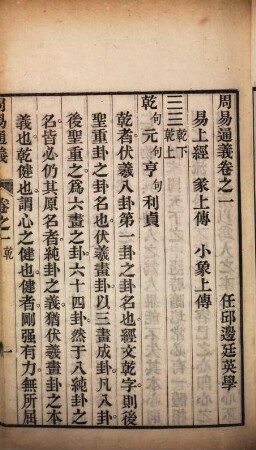 周易通義卷之一
任邱邊廷英學
易上經 彖上傳 小象上傳
三三乾下乾上
乾句元句亨句利貞
乾者伏羲八卦第一卦之卦名也經文乾字則後
聖重卦之卦名也伏羲畫卦以三畫成卦凡八卦
後聖重之為六畫之卦六十四卦然于八純卦之
名皆必仍其原名者純卦之義猶伏羲畫卦之本
義也乾健也謂心之健也健者剛强有力無所屈
周易通義
卷之一 乾
一